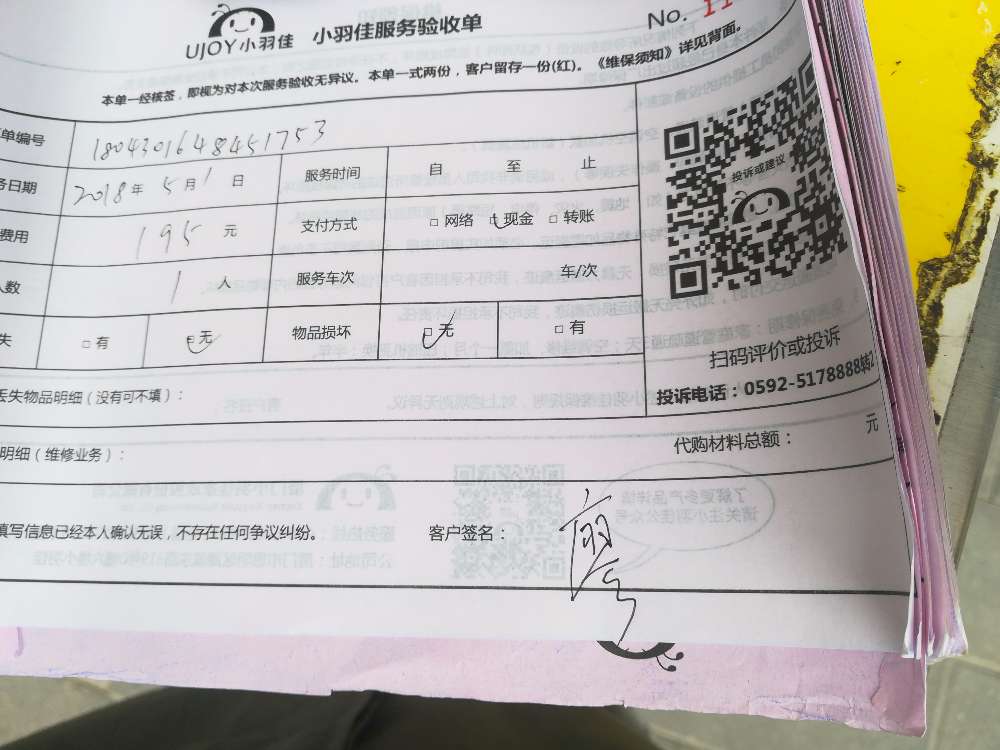 UJOY小羽佳 小羽佳服务验收单 No. 11
本单一经核签，即视为对本次服务验收无异议。本单一式两份，客户留存一份(红)。《维保须知》详见背面。
单编号 180430164845 1753
务日期 2018年 5月 1日 服务时间 自 至 止
费用 195 元 支付方式 □ 网络 □ 现金 □ 转账
人数 1 人 服务车次 车/次
失 □ 有 □ 无 物品损坏 □ 无 □ 有
丢失物品明细（没有可不填）：
明细（维修业务）： 代购材料总额： 元
填写信息已经本人确认无误，不存在任何争议纠纷。 客户签名：
投诉或建议
扫码评价或投诉
投诉电话：0592-5178888转2